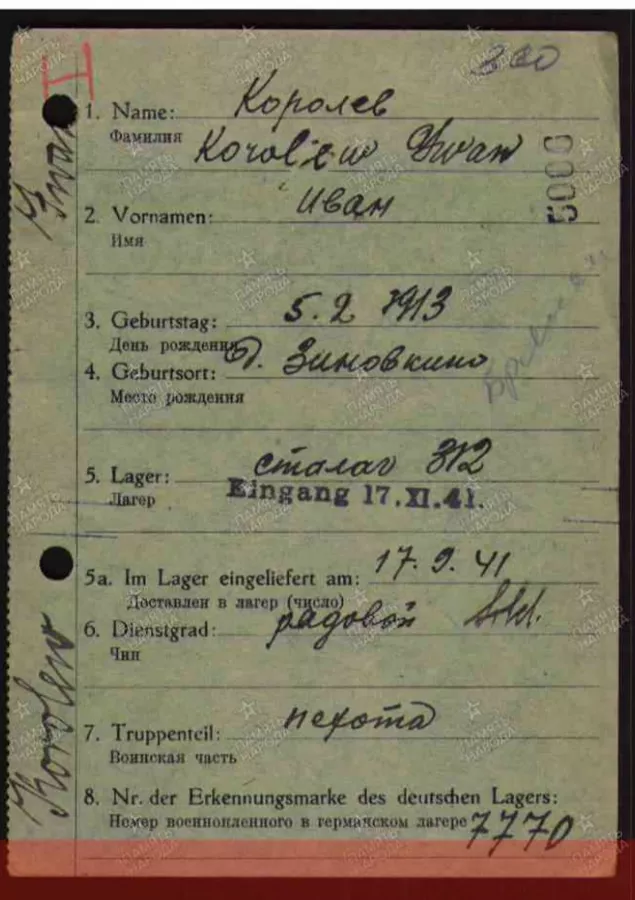 I
1. Name: Королев
Фамилия
Korolew Iwan
2. Vornamen: Иван
Имя
5000
3. Geburtstag: 5.2 1913
День рождения
4. Geburtsort: д. Зиновкино
Место рождения
5. Lager: сталаг 312
Лагер
Eingang 17.XI.41.
5a. Im Lager eingeliefert am: 17.9.41
Доставлен в лагер (число)
6. Dienstgrad: рядовой Sold.
Чин
7. Truppenteil: пехота
Воинская часть
8. Nr. der Erkennungsmarke des deutschen Lagers:
Номер военнопленного в германском лагере 7770
Korolew
Iwan
ПАМЯТЬ
НАРОДА